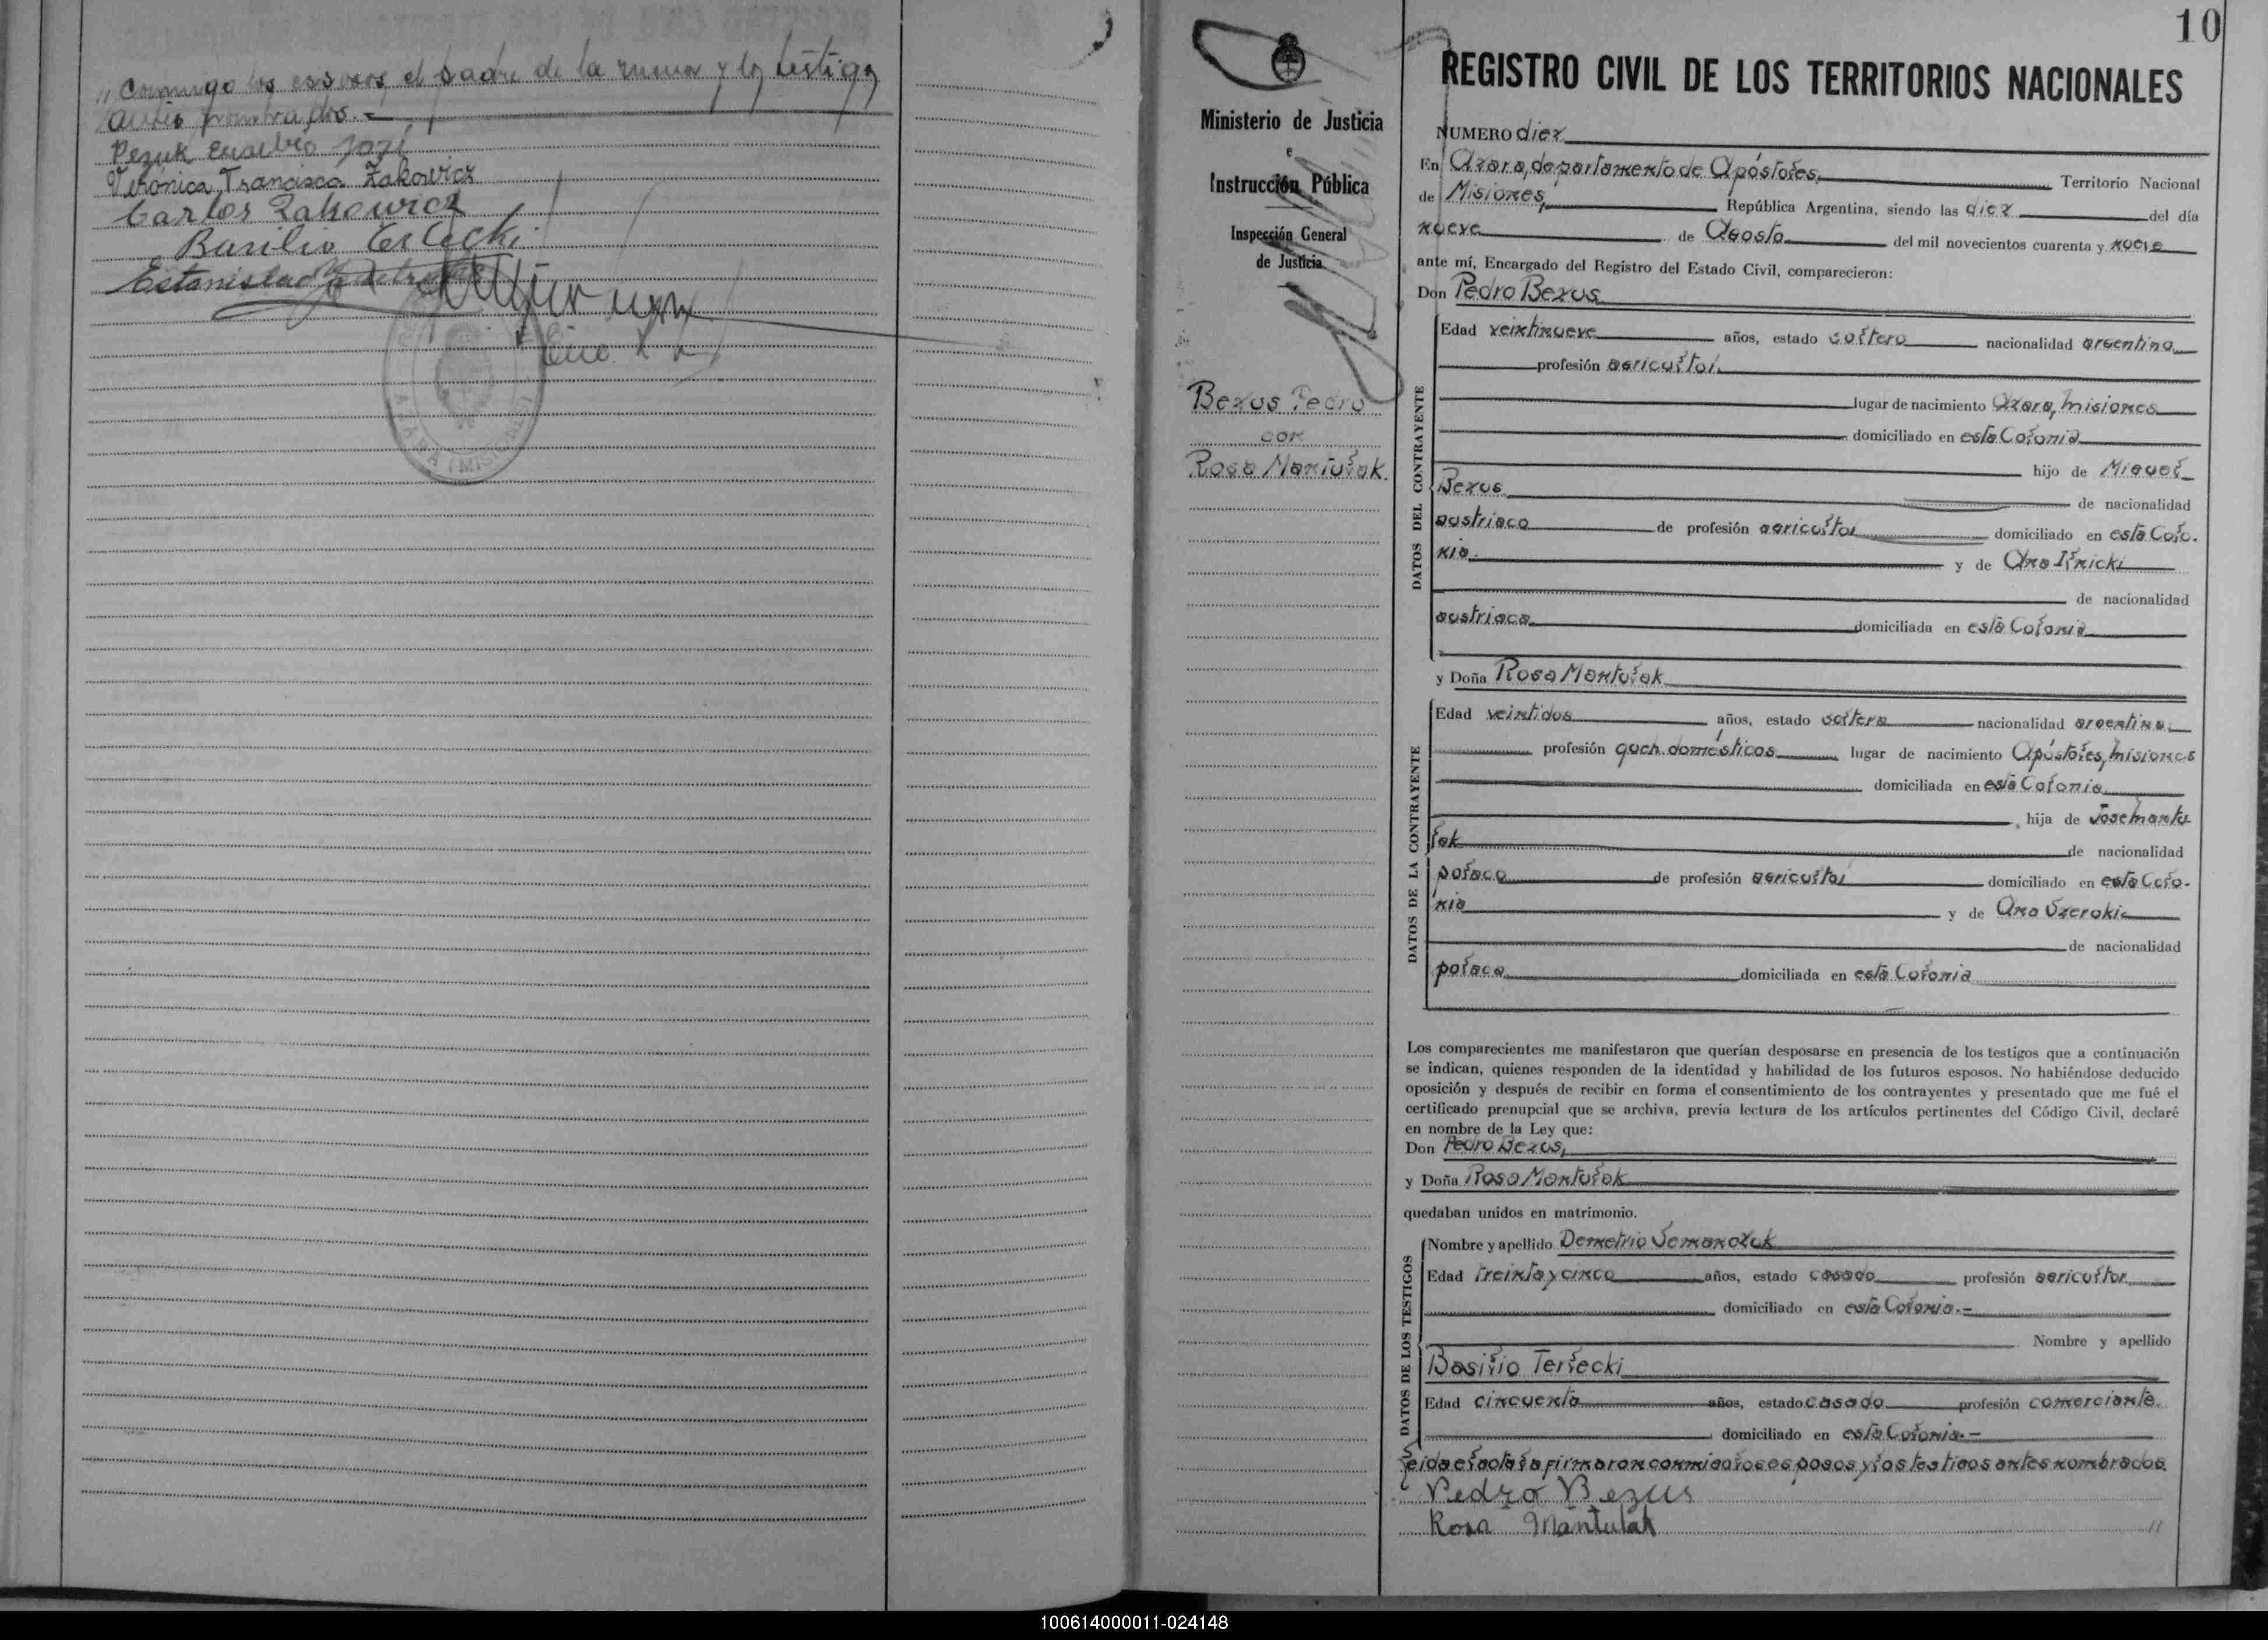 " conmigo los esposos, el padre de la menor y los testigos
antes nombrados. =
Pezuk Eusebio José
Verónica Francisca Zakowicz
Carlos Zakowicz
Basilio Terlecki
Estanislao
AZARA (MISIONES)
10
Ministerio de Justicia
e
Instrucción Pública
Inspección General
de Justicia
Bezus Pedro
con
Rosa Mantulak.
REGISTRO CIVIL DE LOS TERRITORIOS NACIONALES
NUMERO diez
En Azara, departamento de Apóstoles, Territorio Nacional
de Misiones, República Argentina, siendo las diez del día
nueve de Agosto del mil novecientos cuarenta y nueve
ante mí, Encargado del Registro del Estado Civil, comparecieron:
Don Pedro Bezus
DATOS DEL CONTRAYENTE
Edad veintinueve años, estado soltero nacionalidad argentina
profesión agricultor
lugar de nacimiento Azara, Misiones
domiciliado en esta Colonia
hijo de Miguel
Bezus de nacionalidad
austriaco de profesión agricultor domiciliado en esta Colo-
nia. y de Ana Ilnicki
de nacionalidad
austriaca domiciliada en esta Colonia
y Doña Rosa Mantulak
DATOS DE LA CONTRAYENTE
Edad veintidos años, estado soltera nacionalidad argentina
profesión queh. domésticos lugar de nacimiento Apóstoles, Misiones
domiciliada en esta Colonia
hija de Jose Mantu-
lak de nacionalidad
polaco de profesión agricultor domiciliado en esta Colo-
nia y de Ana Szeroki
de nacionalidad
polaca domiciliada en esta Colonia
Los comparecientes me manifestaron que querían desposarse en presencia de los testigos que a continuación
se indican, quienes responden de la identidad y habilidad de los futuros esposos. No habiéndose deducido
oposición y después de recibir en forma el consentimiento de los contrayentes y presentado que me fué el
certificado prenupcial que se archiva, previa lectura de los artículos pertinentes del Código Civil, declaré
en nombre de la Ley que:
Don Pedro Bezus,
y Doña Rosa Mantulak
quedaban unidos en matrimonio.
DATOS DE LOS TESTIGOS
Nombre y apellido Demetrio Semanczuk
Edad treinta y cinco años, estado casado profesión agricultor
domiciliado en esta Colonia.-
Nombre y apellido
Basilio Terlecki
Edad cincuenta años, estado casado profesión comerciante
domiciliado en esta Colonia.-
Leida el acta la firmaron conmigo los esposos y los testigos antes nombrados.
Pedro Bezus
Rosa Mantulak "
100614000011-024148